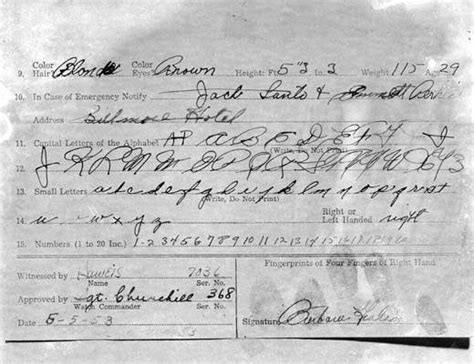 9. Color Hair Blonde Color Eyes Brown Height: Ft 5"3 3 Weight 115-29
10. In Case of Emergency Notify Jack Santo &
Address Biltmore Hotel
11. Capital Letters of the Alphabet A B C D E F
(Write, Do Not Print)
12. J K L M
13. Small Letters a b c d e f g h i j k l m n o p q r s t
(Write, Do Not Print)
14. u w x y z Right or Left Handed right
15. Numbers (1 to 20 Inc.) 1-2 3 4 5 6 7 8 9 10 11 12 13 14 15
Witnessed by Lewis 7036 Fingerprints of Four Fingers of Right Hand
Name Ser. No.
Approved by Sgt. Churchill 368
Watch Commander Ser. No.
Date 5-5-53 Signature Barbara